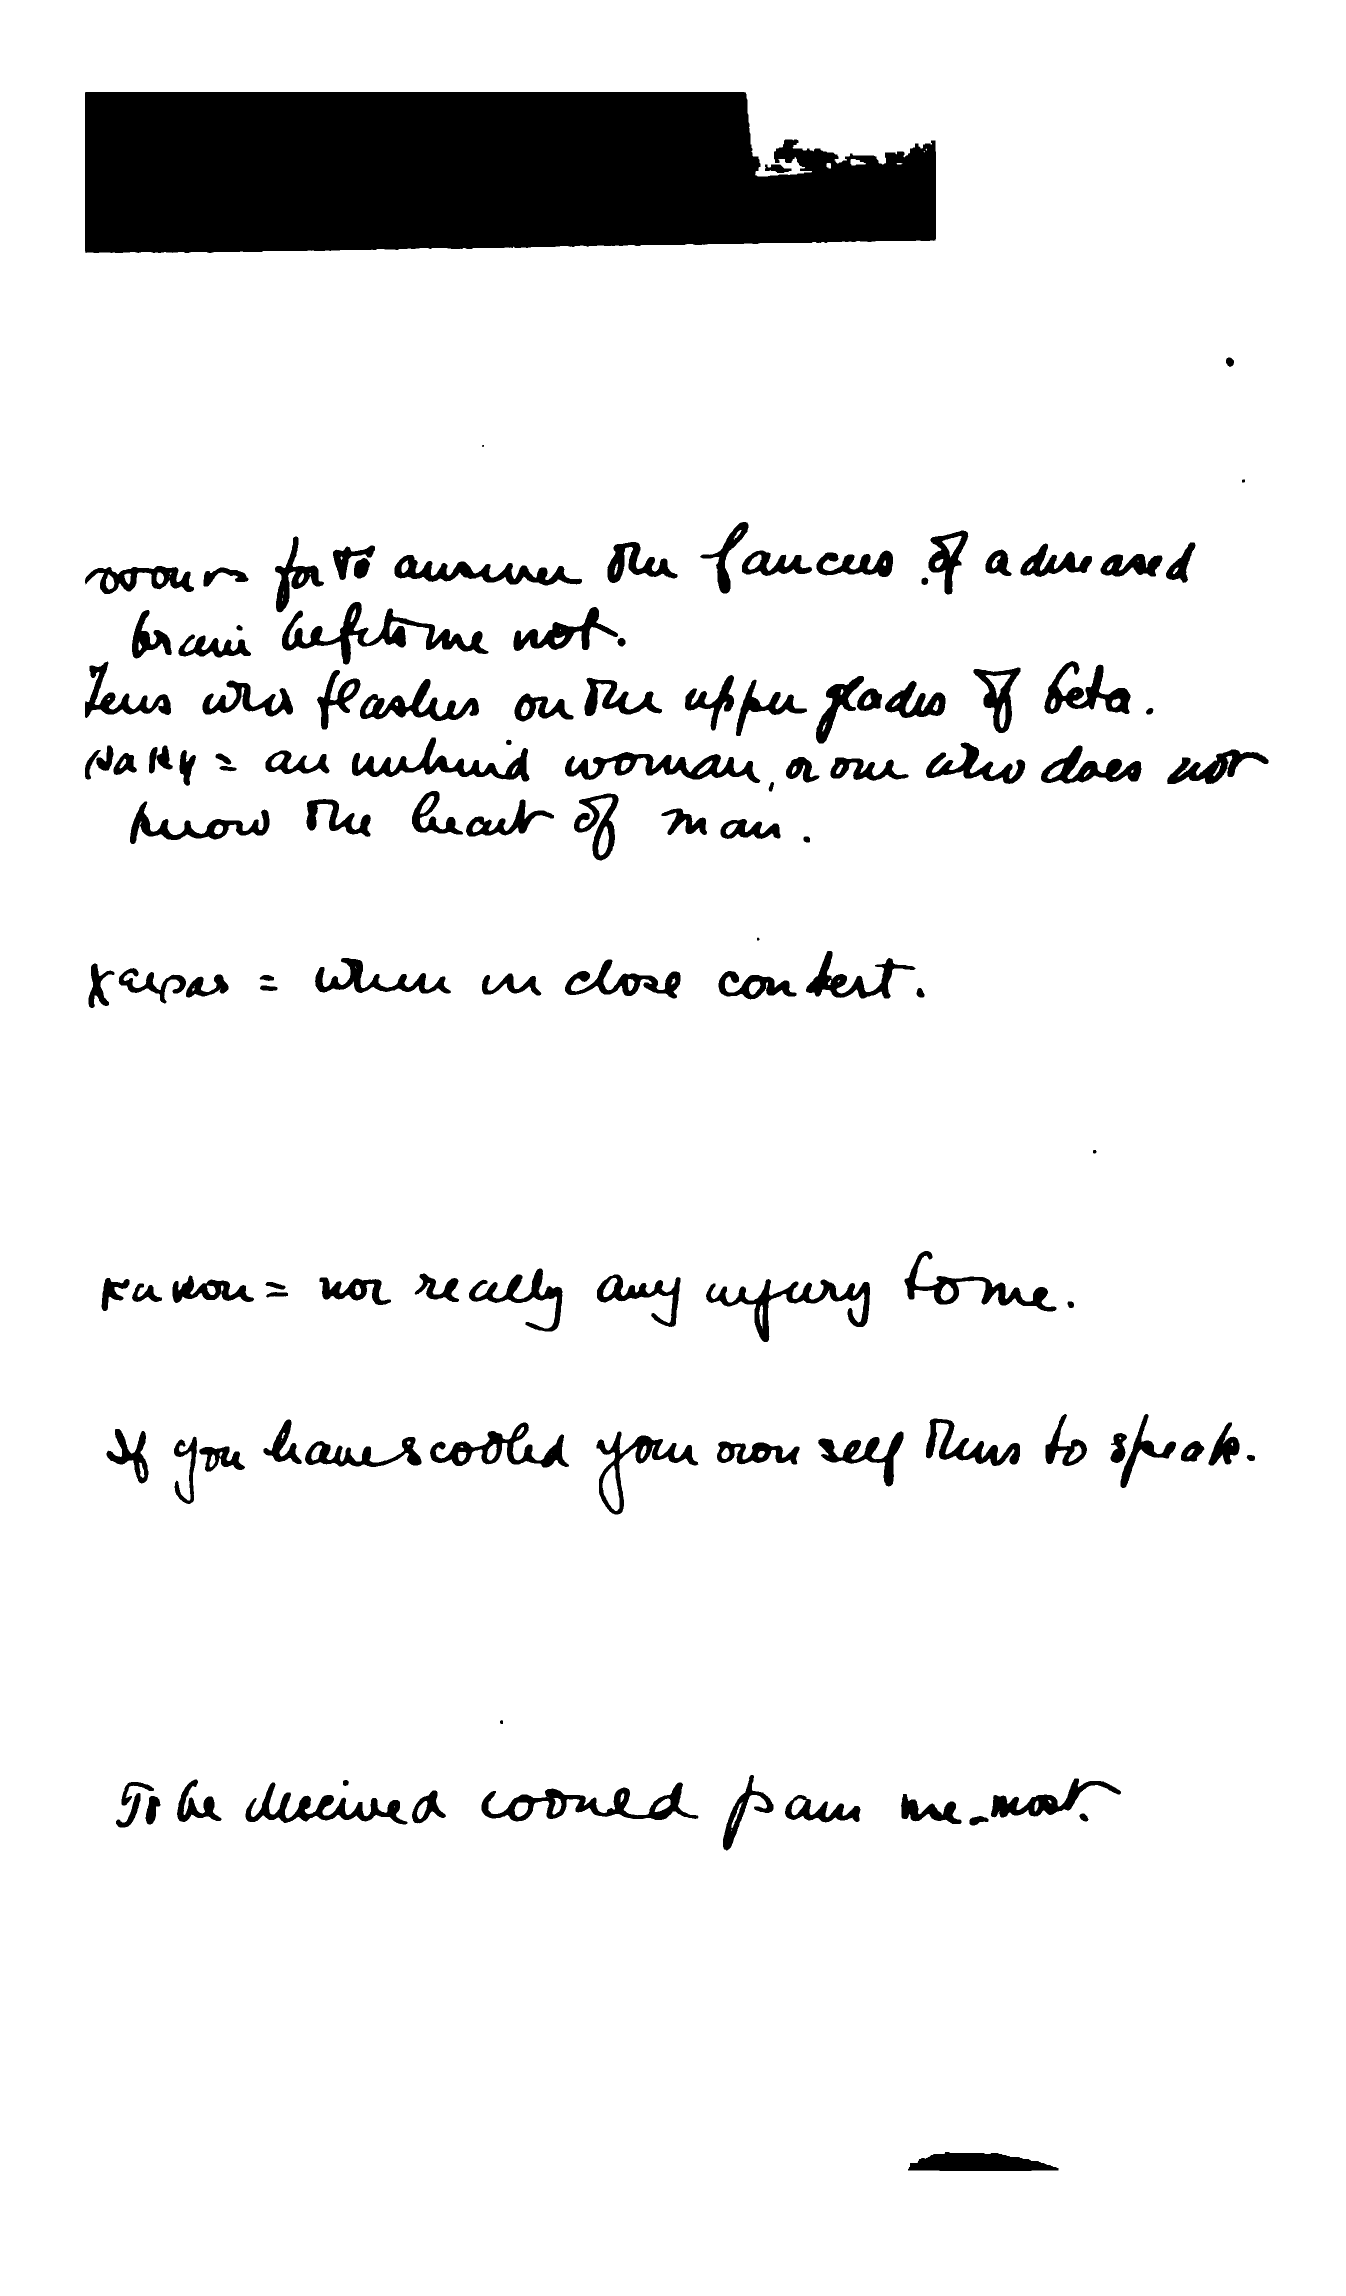 νοσουντος for to answer the fancies of a diseased
brain befits me not.
Zeus who flashes on the upper glades of Oeta.
κακη = an unkind woman, or one who does not
know the heart of man.
χειρας = when in close contest.
κακον = nor really any injury to me.
If you have scolded your own self thus to speak.
To be deceived would pain me most.